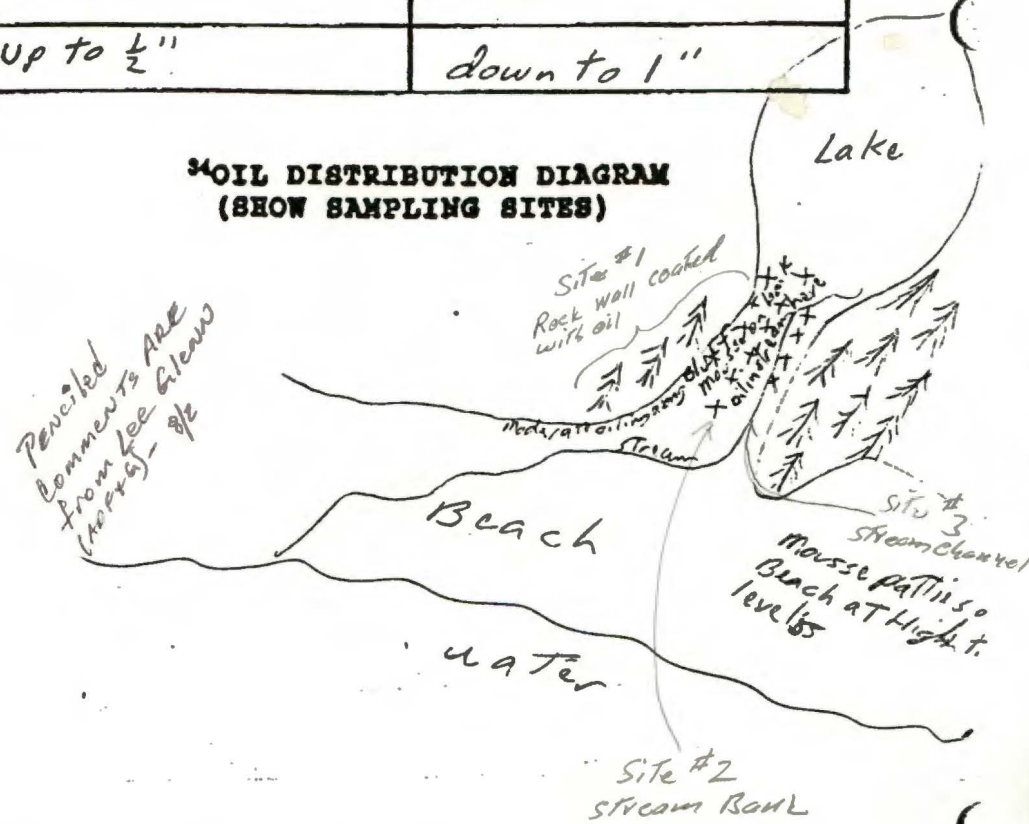 up to 1/2"
down to 1"
34OIL DISTRIBUTION DIAGRAM
(SHOW SAMPLING SITES)
Lake
Site #1
Rock wall coated
with oil
Penciled
comments ARE
from Lee Glenn
(ADF+G) - 8/2
Moderate oiling along Bluff
mousse on bank
oil in stream here
stream
Beach
Site #3
stream channel
mousse patties
Beach at High t.
level
water
Site #2
stream Bank